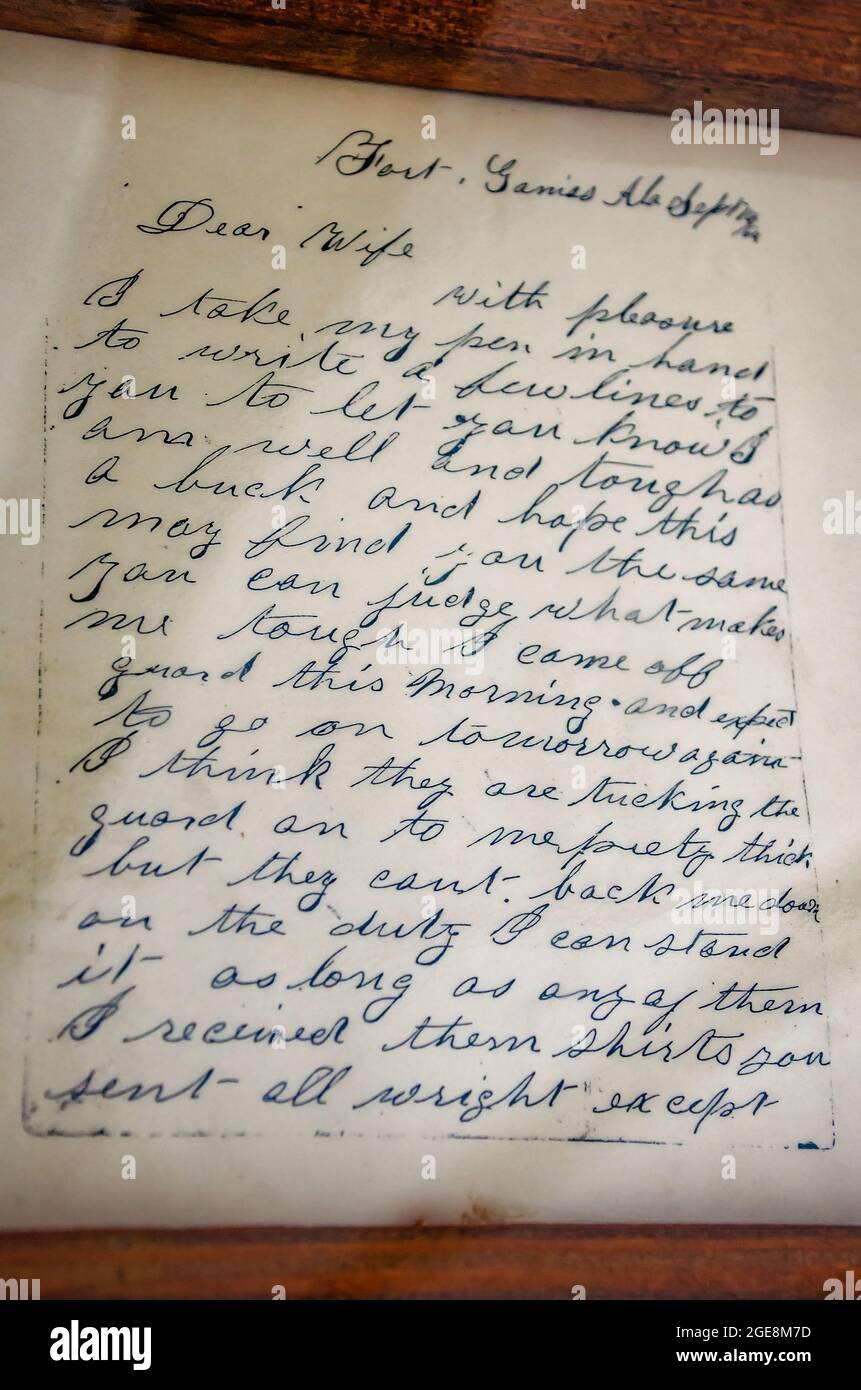 Fort. Ganiss Ala Sept
Dear Wife
with pleasure
I take my pen in hand
to write a few lines to
you to let you know I
am well and tough as
a buck and hope this
may find you the same
you can judge what makes
me tough I came off
guard this morning and expect
to go on tomorrow again
I think they are tucking the
guard on to me prety thick
but they cant. back me down
on the duty I can stand
it as long as any of them
I received them shirts you
sent all wright except
alamy
Image ID: 2GE8M7D
www.alamy.com